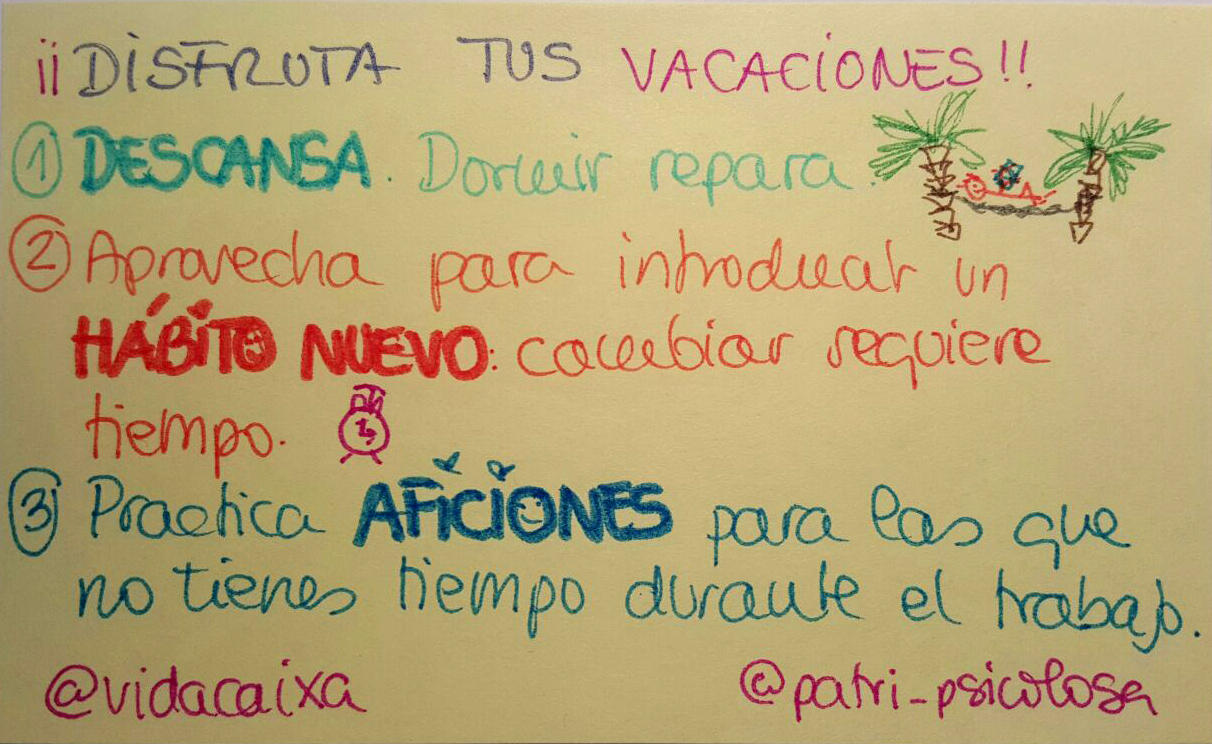 ¡¡DISFRUTA TUS VACACIONES!!
1 DESCANSA. Dormir repara.
2 Aprovecha para introducir un
HÁBITO NUEVO: cambiar requiere
tiempo.
3 Practica AFICIONES para las que
no tienes tiempo durante el trabajo.
@vidacaixa @patri_psicologa